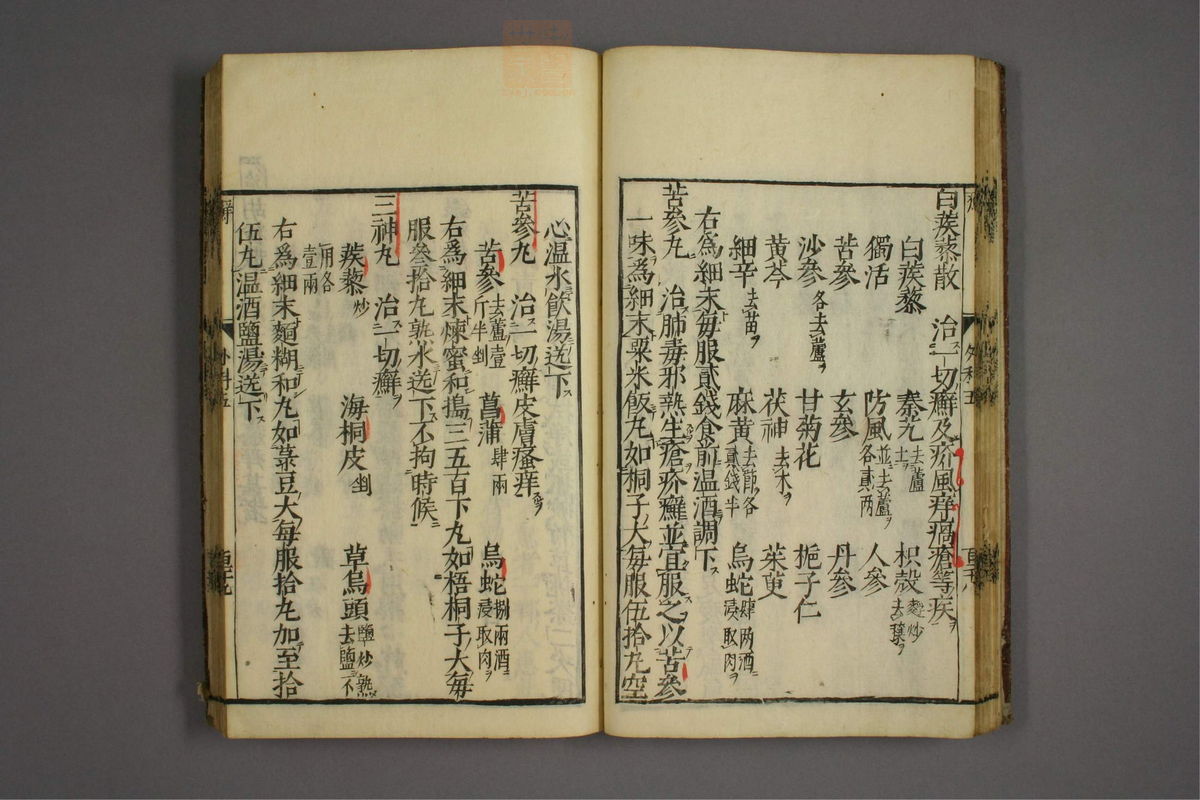 白蒺藜散　治一切癬及疥風痒瘑瘡等疾
白蒺藜　秦艽去蘆土　枳殼麩炒去穰
獨活　防風並去蘆各貳两　人參
苦參　玄參　丹參
沙參各去蘆　甘菊花　梔子仁
黄芩　茯神去木　茱萸
細辛去苗　麻黄去節各貳錢半　烏蛇肆两酒浸取肉
右為細末每服貳錢食前温酒調下
苦參丸　治肺毒邪熱生瘡疥癬並宜服之以苦參
一味為細末粟米飯丸如桐子大每服伍拾丸空
心温水飲湯送下
苦參丸　治一切癬皮膚瘙痒
苦參去蘆壹斤半剉　菖蒲肆兩　烏蛇捌兩酒浸取肉
右爲細末煉蜜和搗三五百下丸如梧桐子大每
服叁拾丸熟水送下不拘時候
三神丸　治一切癬
蒺藜炒　海桐皮剉　草烏頭鹽炒熟去鹽不
用各壹兩
右爲細末麵糊和丸如菉豆大每服拾丸加至拾
伍丸温酒鹽湯送下
外科五